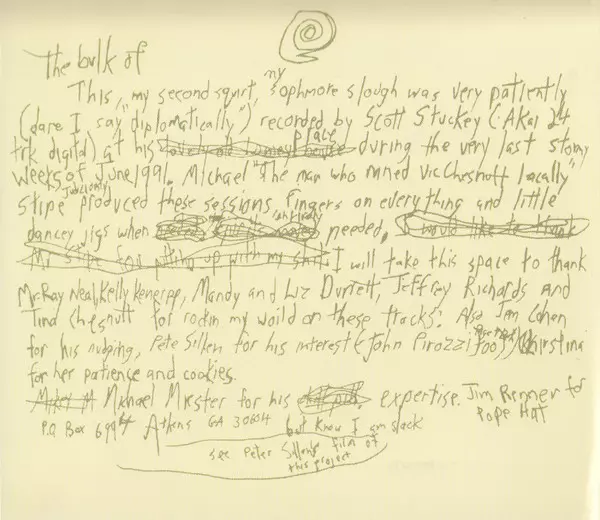 The bulk of
This, my second squirt, my sophmore slough was very patiently
(dare I say "diplomatically") recorded by Scott Stuckey (Akai 24
trk digital) at his place during the very last stormy
weeks of June 1991. Michael "The man who ruined Vic Chesnutt locally"
Stipe produced these sessions, fingers on everything and little
dancey jigs when needed. I would like to thank
Mr Stipe for putting up with my shit I will take this space to thank
McKay Neal, Kelly Keneipp, Mandy and Liz Durrett, Jeffrey Richards and
Tina Chesnutt for rockin my world on these tracks. Also Jem Cohen
for his nudging, Pete Sillen for his interest (John Pirozzi too)
for her patience and cookies.
Michael Meister for his expertise. Jim Renner for
Pope Hat
P.O. Box Athens GA 30604
but know I am slack
see Peter Sillen's film of
this project